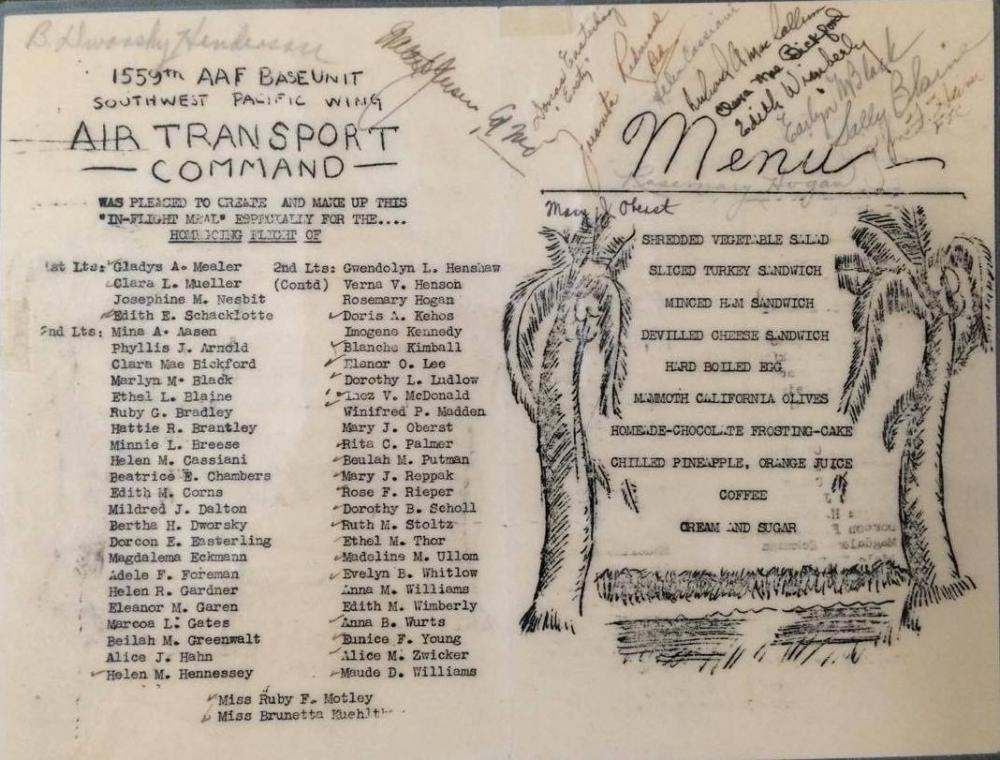 B. Dworsky Henderson
1559th AAF BASE UNIT
SOUTHWEST PACIFIC WING
AIR TRANSPORT
— COMMAND —
WAS PLEASED TO CREATE AND MAKE UP THIS
"IN-FLIGHT MEAL" ESPECIALLY FOR THE....
HOMEGOING FLIGHT OF
1st Lts: Gladys A. Mealer
Clara L. Mueller
Josephine M. Nesbit
Edith E. Schacklotte
2nd Lts: Mina A. Aasen
Phyllis J. Arnold
Clara Mae Bickford
Marlyn M. Black
Ethel L. Blaine
Ruby G. Bradley
Hattie R. Brantley
Minnie L. Breese
Helen M. Cassiani
Beatrice E. Chambers
Edith M. Corns
Mildred J. Dalton
Bertha H. Dworsky
Dorcon E. Easterling
Magdalema Eckmann
Adele F. Foreman
Helen R. Gardner
Eleanor M. Garen
Marcoa L. Gates
Beilah M. Greenwalt
Alice J. Hahn
Helen M. Hennessey
2nd Lts: Gwendolyn L. Henshaw
(Contd) Verna V. Henson
Rosemary Hogan
Doris A. Kehos
Imogene Kennedy
Blanche Kimball
Elenor O. Lee
Dorothy L. Ludlow
Inez V. McDonald
Winifred P. Madden
Mary J. Oberst
Rita C. Palmer
Beulah M. Putman
Mary J. Reppak
Rose F. Rieper
Dorothy B. Scholl
Ruth M. Stoltz
Ethel M. Thor
Madeline M. Ullom
Evelyn B. Whitlow
Anna M. Williams
Edith M. Wimberly
Anna B. Wurts
Eunice F. Young
Alice M. Zwicker
Maude D. Williams
Miss Ruby F. Motley
Miss Brunetta
"Easty"
Helen Cassiani
Clara Mae Bickford
Edith Wimberly
Earlyn M Black
Sally Blaine
Menu
Rosemary Hogan
Mary J. Oberst
SHREDDED VEGETABLE SALAD
SLICED TURKEY SANDWICH
MINCED HAM SANDWICH
DEVILLED CHEESE SANDWICH
HARD BOILED EGG
MAMMOTH CALIFORNIA OLIVES
HOMEMADE-CHOCOLATE FROSTING-CAKE
CHILLED PINEAPPLE, ORANGE JUICE
COFFEE
CREAM AND SUGAR